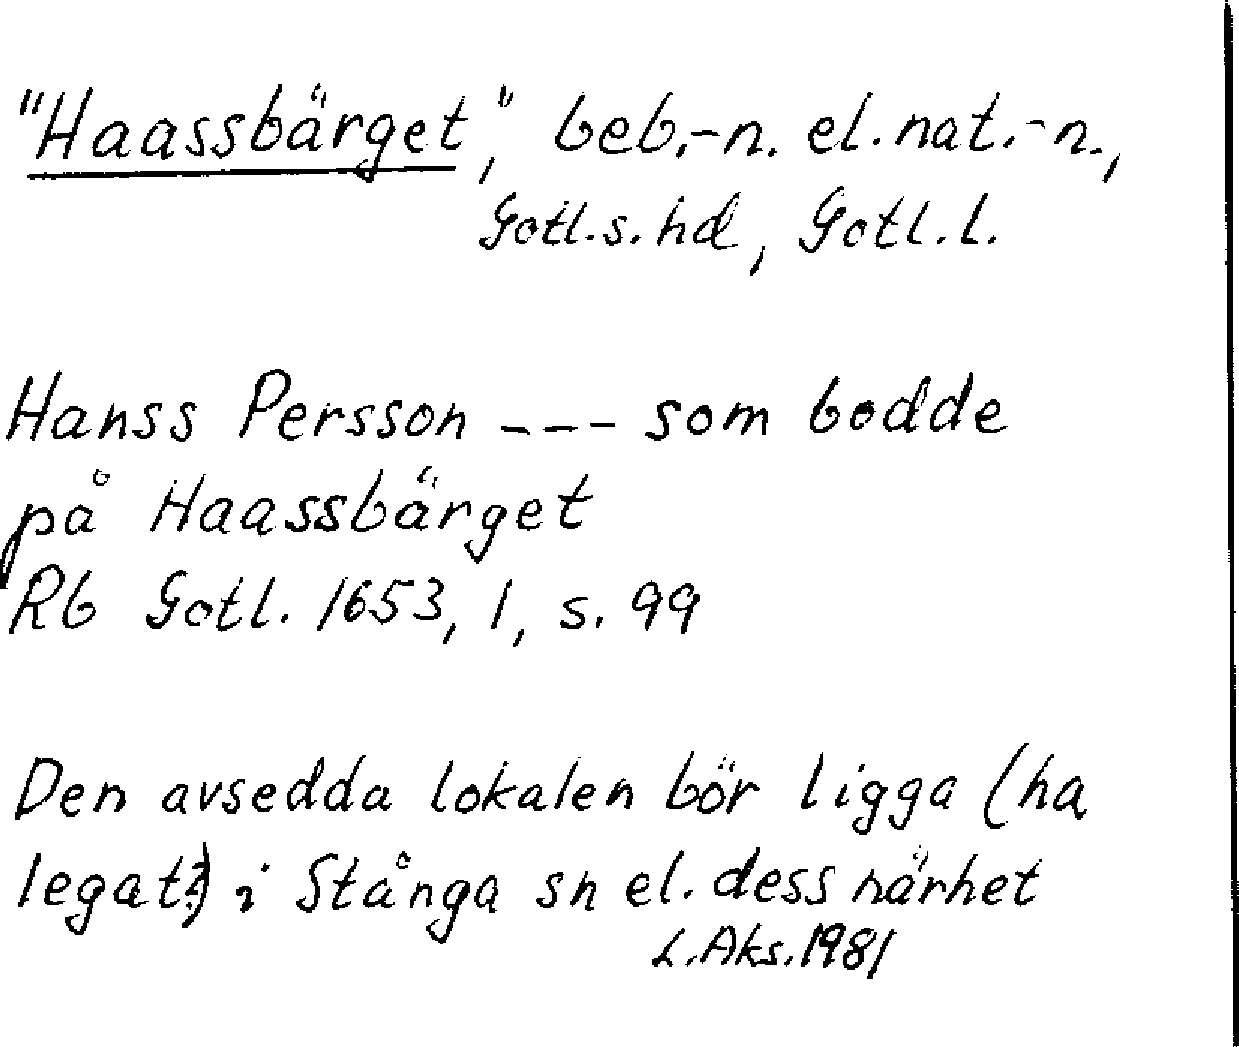 "Haassbärget," beb.-n. el. nat.-n.,
Gotl. s. hd, Gotl. l.
Hanss Persson --- som bodde
på Haassbärget
Rb Gotl. 1653, 1, s. 99
Den avsedda lokalen bör ligga (ha
legat?) i Stånga sn el. dess närhet
L. Aks. 1981